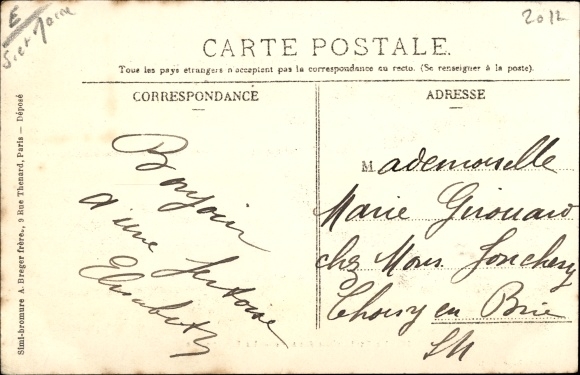 E
S. et Marne
2012
CARTE POSTALE.
Tous les pays étrangers n'acceptent pas la correspondance au recto. (Se renseigner à la poste).
CORRESPONDANCE
ADRESSE
Bonjour
d'une
Elisabeth
Mademoiselle
Marie Girouard
chez Mons Jonchery
Choisy en Brie
SM
Simi-bromure A. Breger frères., 9 Rue Thenard, Paris — Déposé